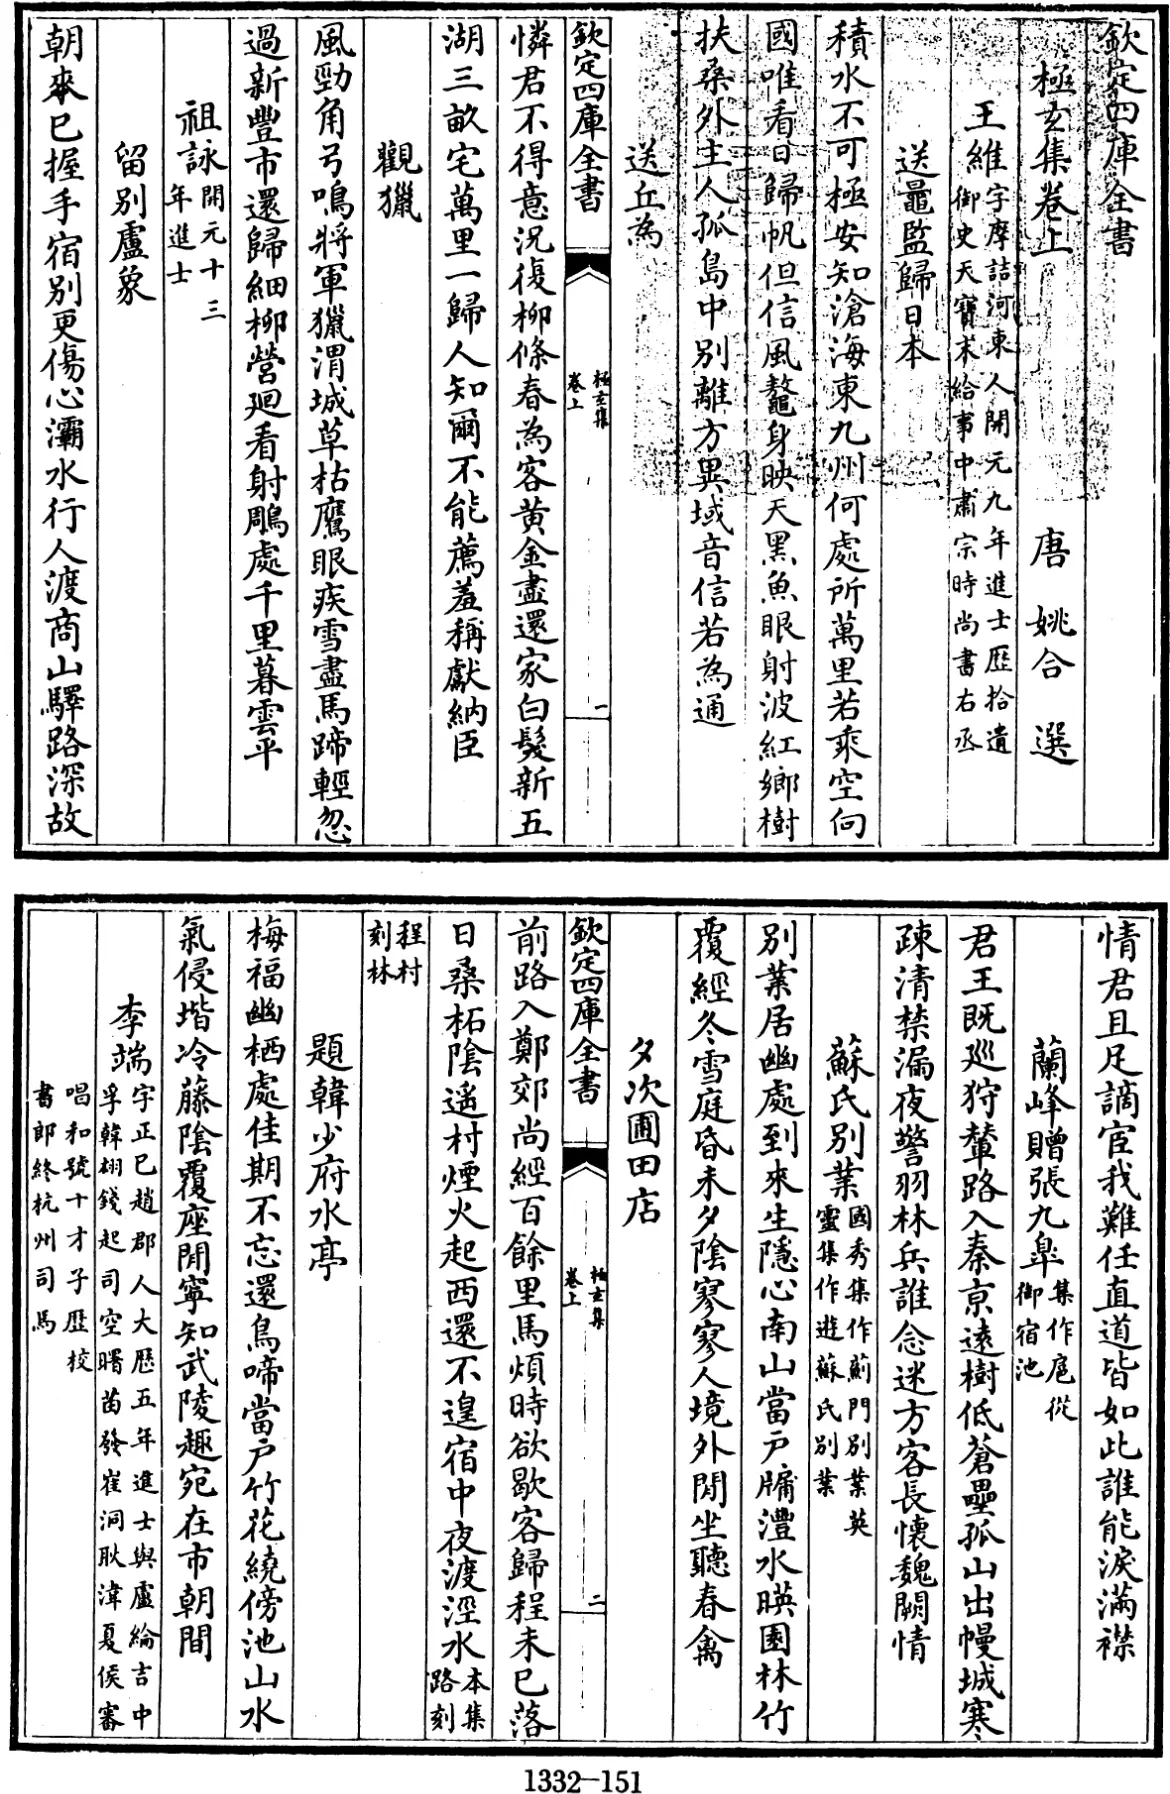 欽定四庫全書
極玄集卷上 唐 姚合 選
王維字摩詰河東人開元九年進士歷拾遺
御史天寶末給事中肅宗時尚書右丞
送鼂監歸日本
積水不可極安知滄海東九州何處所萬里若乘空向
國唯看日歸帆但信風鼇身映天黑魚眼射波紅鄉樹
扶桑外主人孤島中別離方異域音信若為通
送丘為
欽定四庫全書
極玄集
卷上
一
憐君不得意況復柳條春為客黃金盡還家白髮新五
湖三畝宅萬里一歸人知爾不能薦羞稱獻納臣
觀獵
風勁角弓鳴將軍獵渭城草枯鷹眼疾雪盡馬蹄輕忽
過新豐市還歸細柳營迴看射鵰處千里暮雲平
祖詠開元十三
年進士
留別盧象
朝來已握手宿別更傷心灞水行人渡商山驛路深故
情君且足謫宦我難任直道皆如此誰能淚滿襟
蘭峰贈張九臯集作扈從
御宿池
君王既巡狩輦路入秦京遠樹低蒼壘孤山出幔城寒
疎清禁漏夜警羽林兵誰念迷方客長懷魏闕情
蘇氏別業國秀集作薊門別業英
靈集作遊蘇氏別業
別業居幽處到來生隱心南山當戶牖灃水暎園林竹
覆經冬雪庭昏未夕陰寥寥人境外閒坐聽春禽
夕次圃田店
欽定四庫全書
極玄集
卷上
二
前路入鄭郊尚經百餘里馬煩時欲歇客歸程未已落
日桑柘陰遥村煙火起西還不遑宿中夜渡涇水本集
路刻
程村
刻林
題韓少府水亭
梅福幽栖處佳期不忘還鳥啼當戶竹花繞傍池山水
氣侵堦冷藤陰覆座閒寧知武陵趣宛在市朝間
李端字正已趙郡人大歷五年進士與盧綸吉中
孚韓翃錢起司空曙苗發崔洞耿湋夏侯審
唱和號十才子歷校
書郎終杭州司馬
1332-151